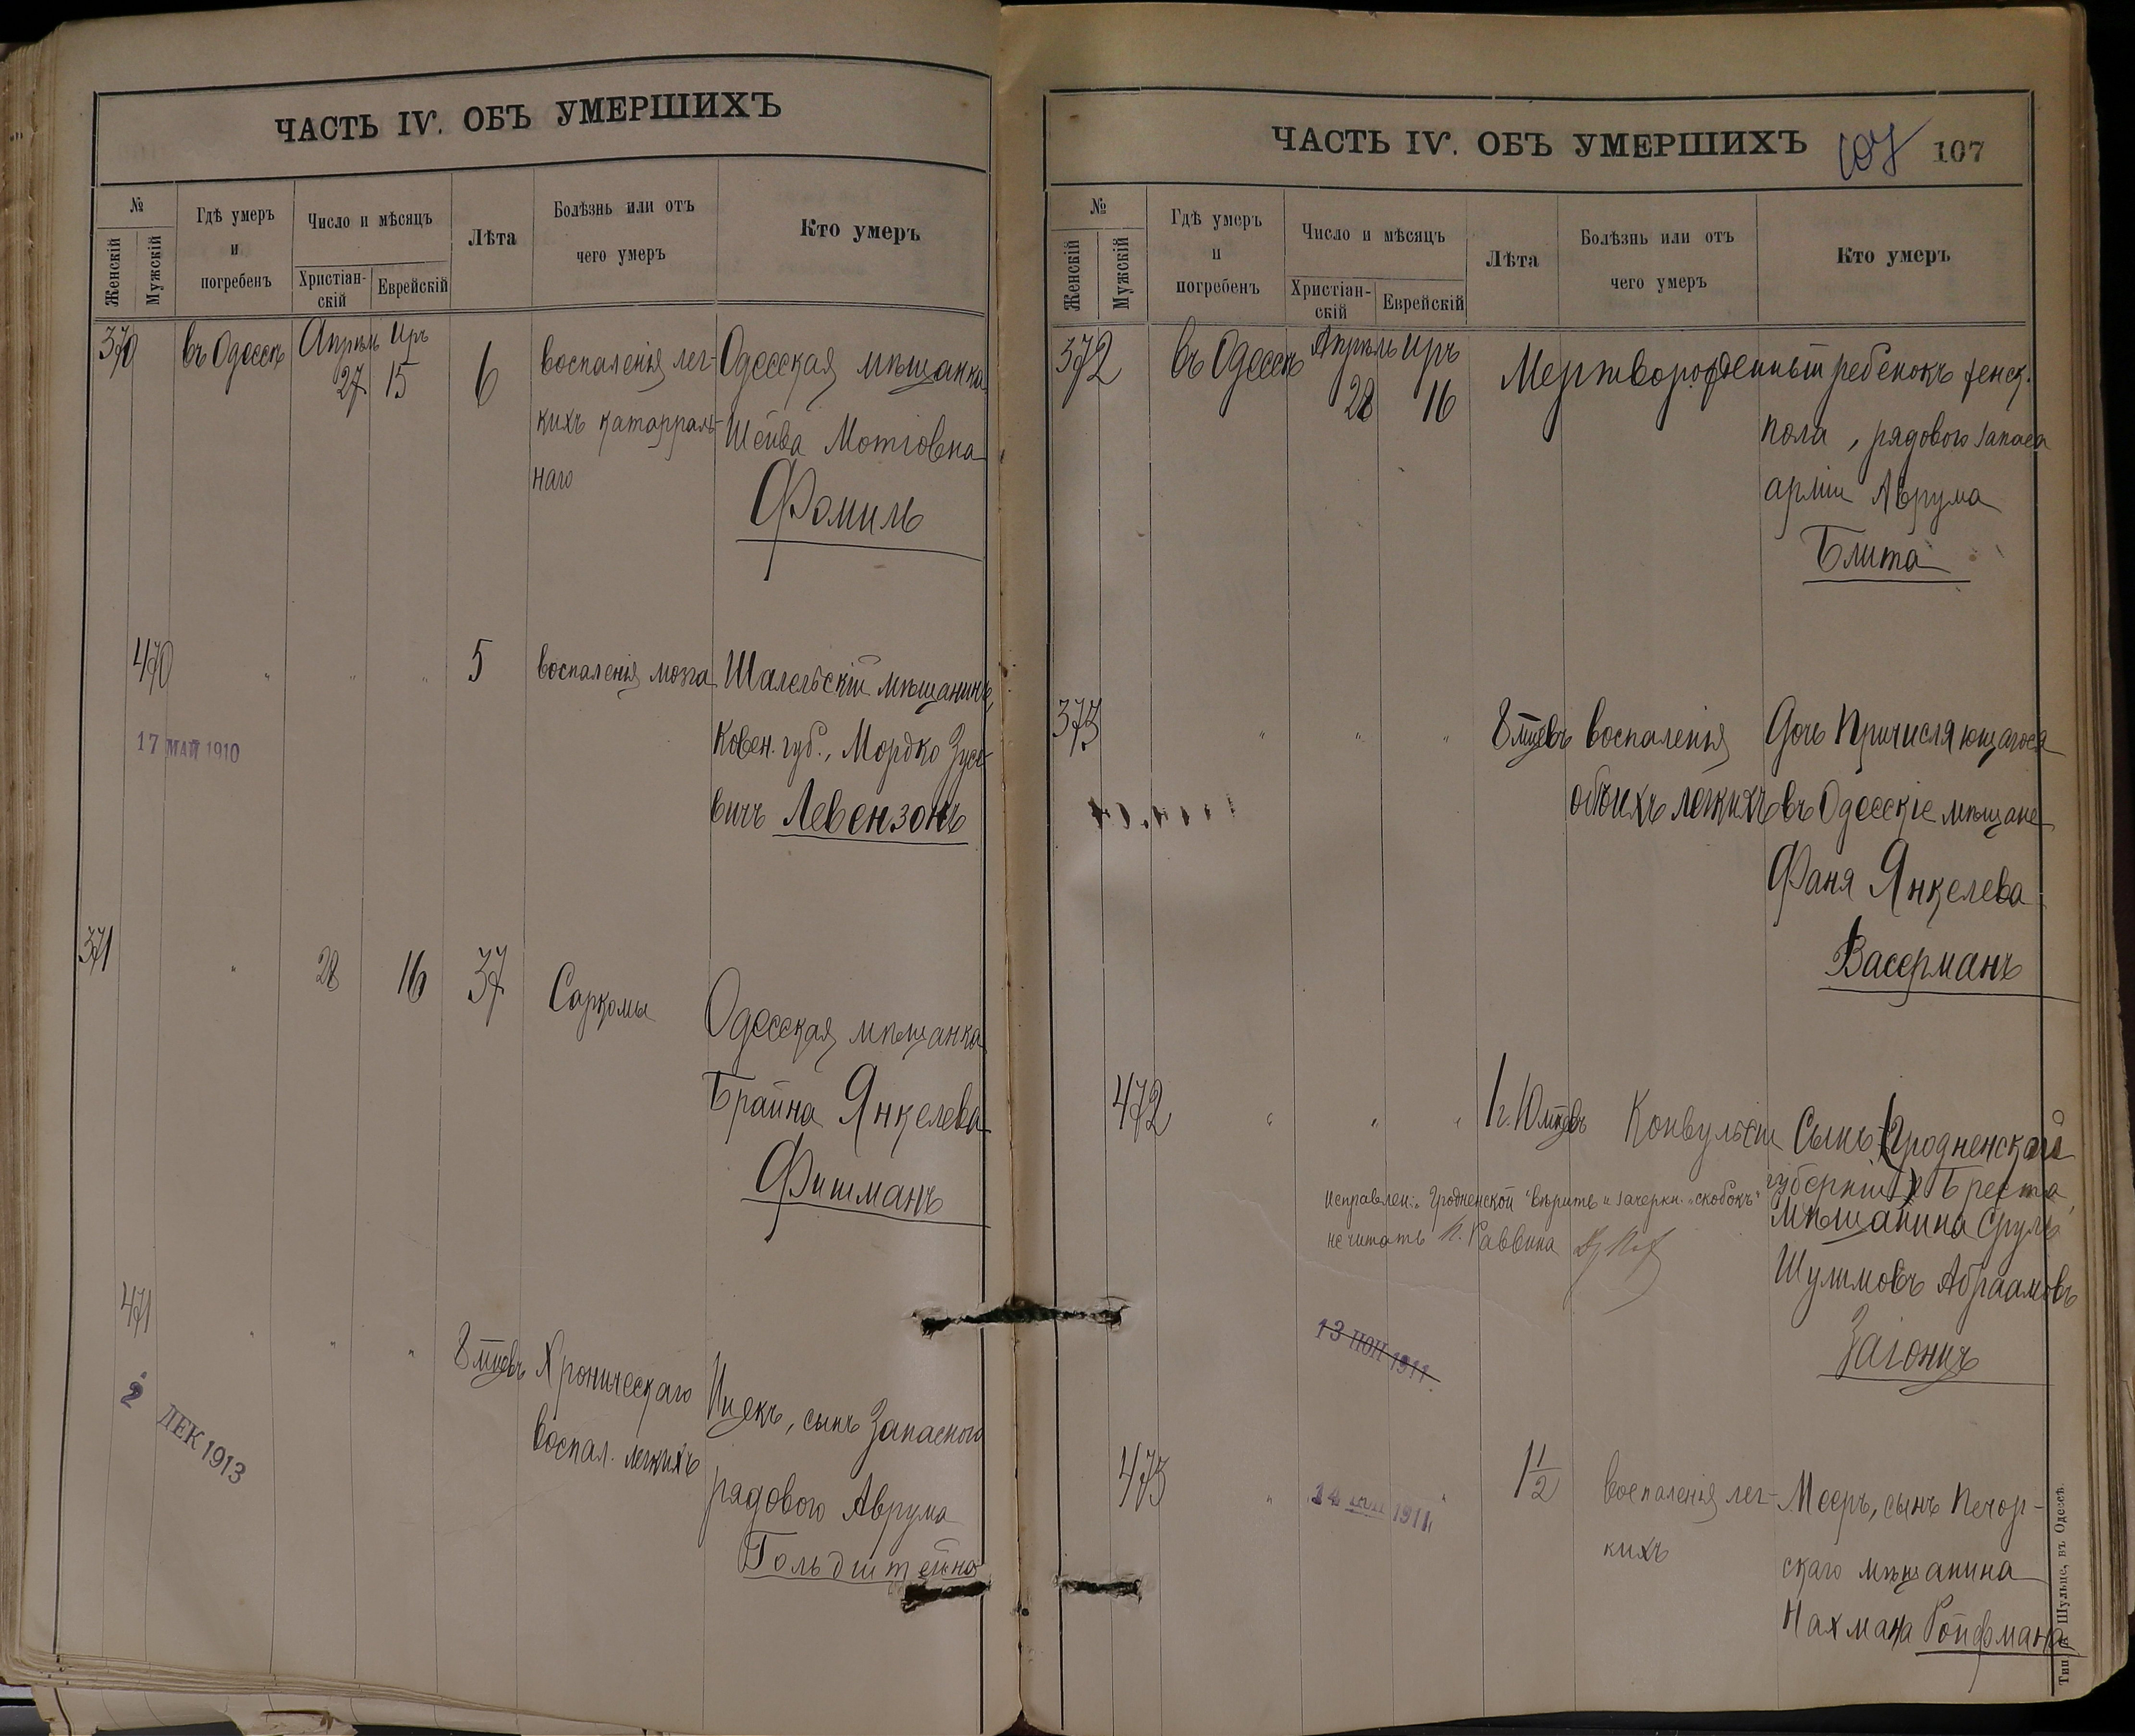 ЧАСТЬ IV. ОБЪ УМЕРШИХЪ
№
Женскій
Мужскій
Гдѣ умеръ
и
погребенъ
Число и мѣсяцъ
Христіан-
скій
Еврейскій
Лѣта
Болѣзнь или отъ
чего умеръ
Кто умеръ
370 въ Одессѣ Апрѣль Иръ
27 15 6
воспаленія лег-
кихъ катарраль-
наго
Одесская мѣщанка
Шейва Мотіовна
Фомиль
470 " " " 5 воспаленія мозга
Шалельскій мѣщанинъ,
Ковен. губ., Мордко Зусе-
вичъ Левензонъ
17 МАЙ 1910
371 " 28 16 37 Саркомы
Одесская мѣщанка
Брайна Янкелева
Фишманъ
471 " " " 8 мцевъ Хроническаго
воспал. легкихъ
Ицекъ, сынъ Запасного
рядового Аврума
Гольдштейна
2 ДЕК 1913
ЧАСТЬ IV. ОБЪ УМЕРШИХЪ 107 107
№
Женскій
Мужскій
Гдѣ умеръ
и
погребенъ
Число и мѣсяцъ
Христіан-
скій
Еврейскій
Лѣта
Болѣзнь или отъ
чего умеръ
Кто умеръ
372 въ Одессѣ Апрѣль Иръ
28 16
Мертворожденный ребенокъ женск.
пола, рядового запаса
арміи Аврума
Блита
373 " " " 8 мцевъ воспаленія
обоихъ легкихъ
Дочь Причисляющагося
въ Одесскіе мѣщане
Фаня Янкелева
Васерманъ
472 " " " 1 г. 10 мцевъ Конвульсіи
Сынъ (Гродненской
губерніи) Бреста
мѣщанина Сруль
Шулимовъ Абраамовъ
Загонъ
Исправлен: "Гродненской" вѣрить и зачеркн. "скобокъ"
не читать Раввина
13 ИЮН 1911
473 " " 1 1/2 воспаленія лег-
кихъ
14 1911
Мееръ, сынъ Печор-
скаго мѣщанина
Нахмана Ройфмана
Тип. Шульце, въ Одессѣ.